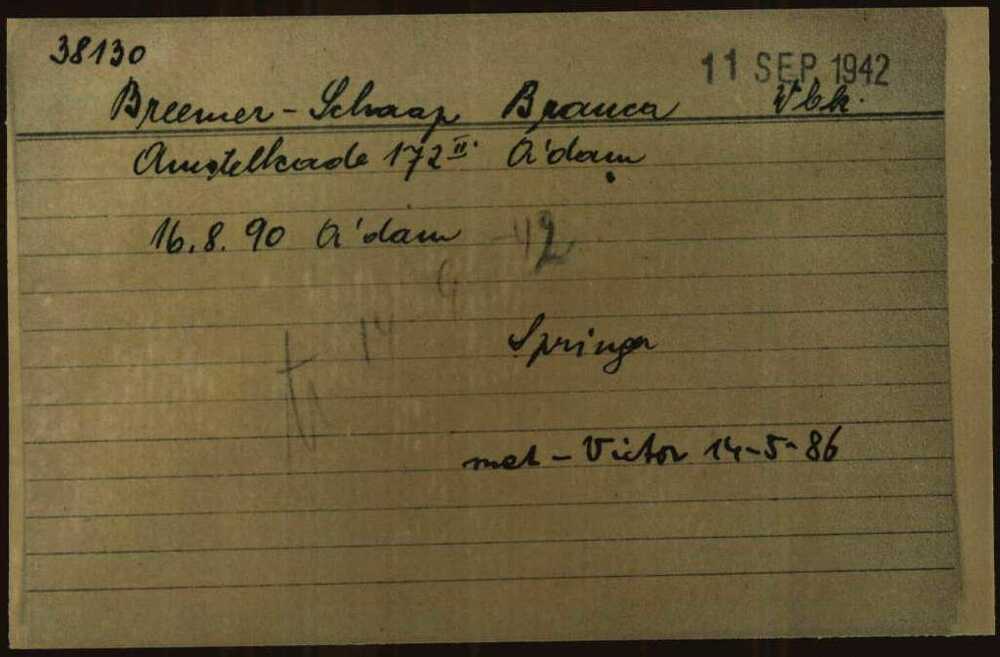 38130
11 SEP 1942
Breemer-Schaap Branca Vbk.
Amstelkade 172 II. A'dam
16.8.90 A'dam
14 9 42
Springer
met - Victor 14-5-86